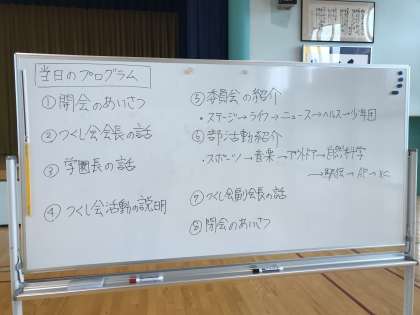 当日のプログラム
①開会のあいさつ
②つくし会会長の話
③学園長の話
④つくし会活動の説明
⑤委員会の紹介
・ステージ→ライフ→ニュース→ヘルス→少年団
⑥部活動紹介
・スポーツ→音楽→アウトドア→自然科学
⑦つくし会副会長の話
⑧閉会のあいさつ